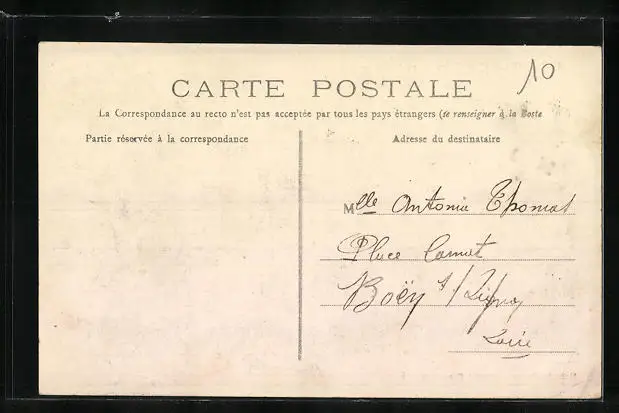 10
CARTE POSTALE
La Correspondance au recto n'est pas acceptée par tous les pays étrangers (se renseigner à la Poste
Partie réservée à la correspondance
Adresse du destinataire
Mlle Antonia Thomas
Place Carnot
Boën s/ Lignon
Loire